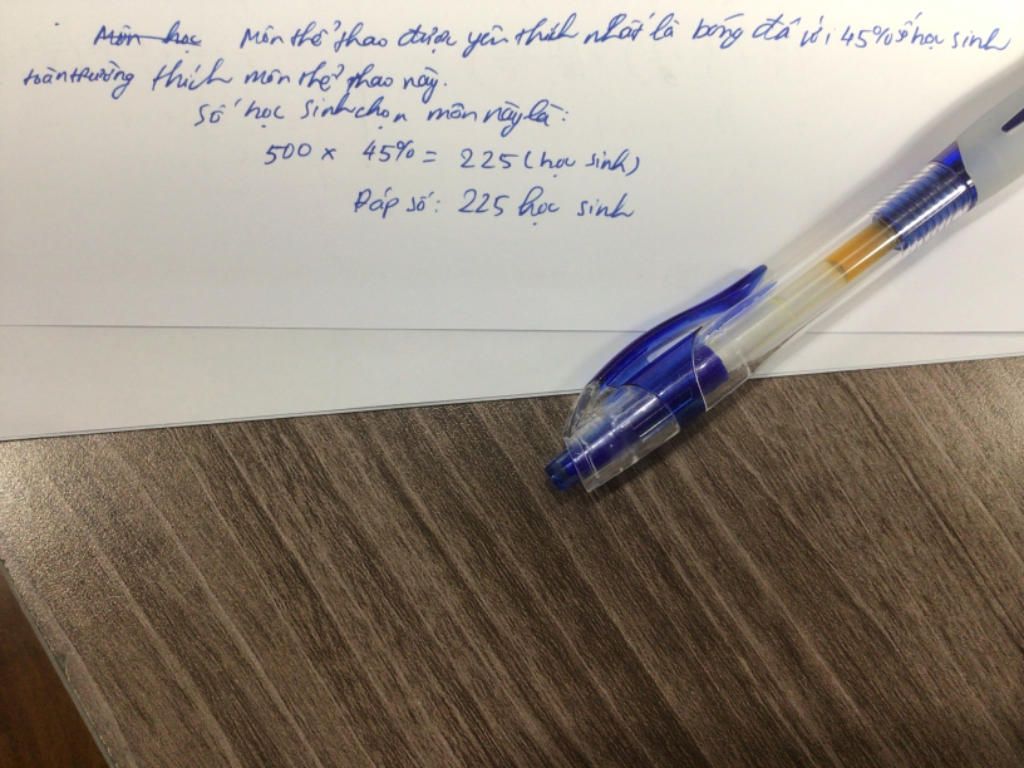 Môn học Môn thể thao được yêu thích nhất là bóng đá với 45% số học sinh
toàn trường thích môn thể thao này.
Số học sinh chọn môn này là:
500 x 45% = 225 (học sinh)
Đáp số: 225 học sinh